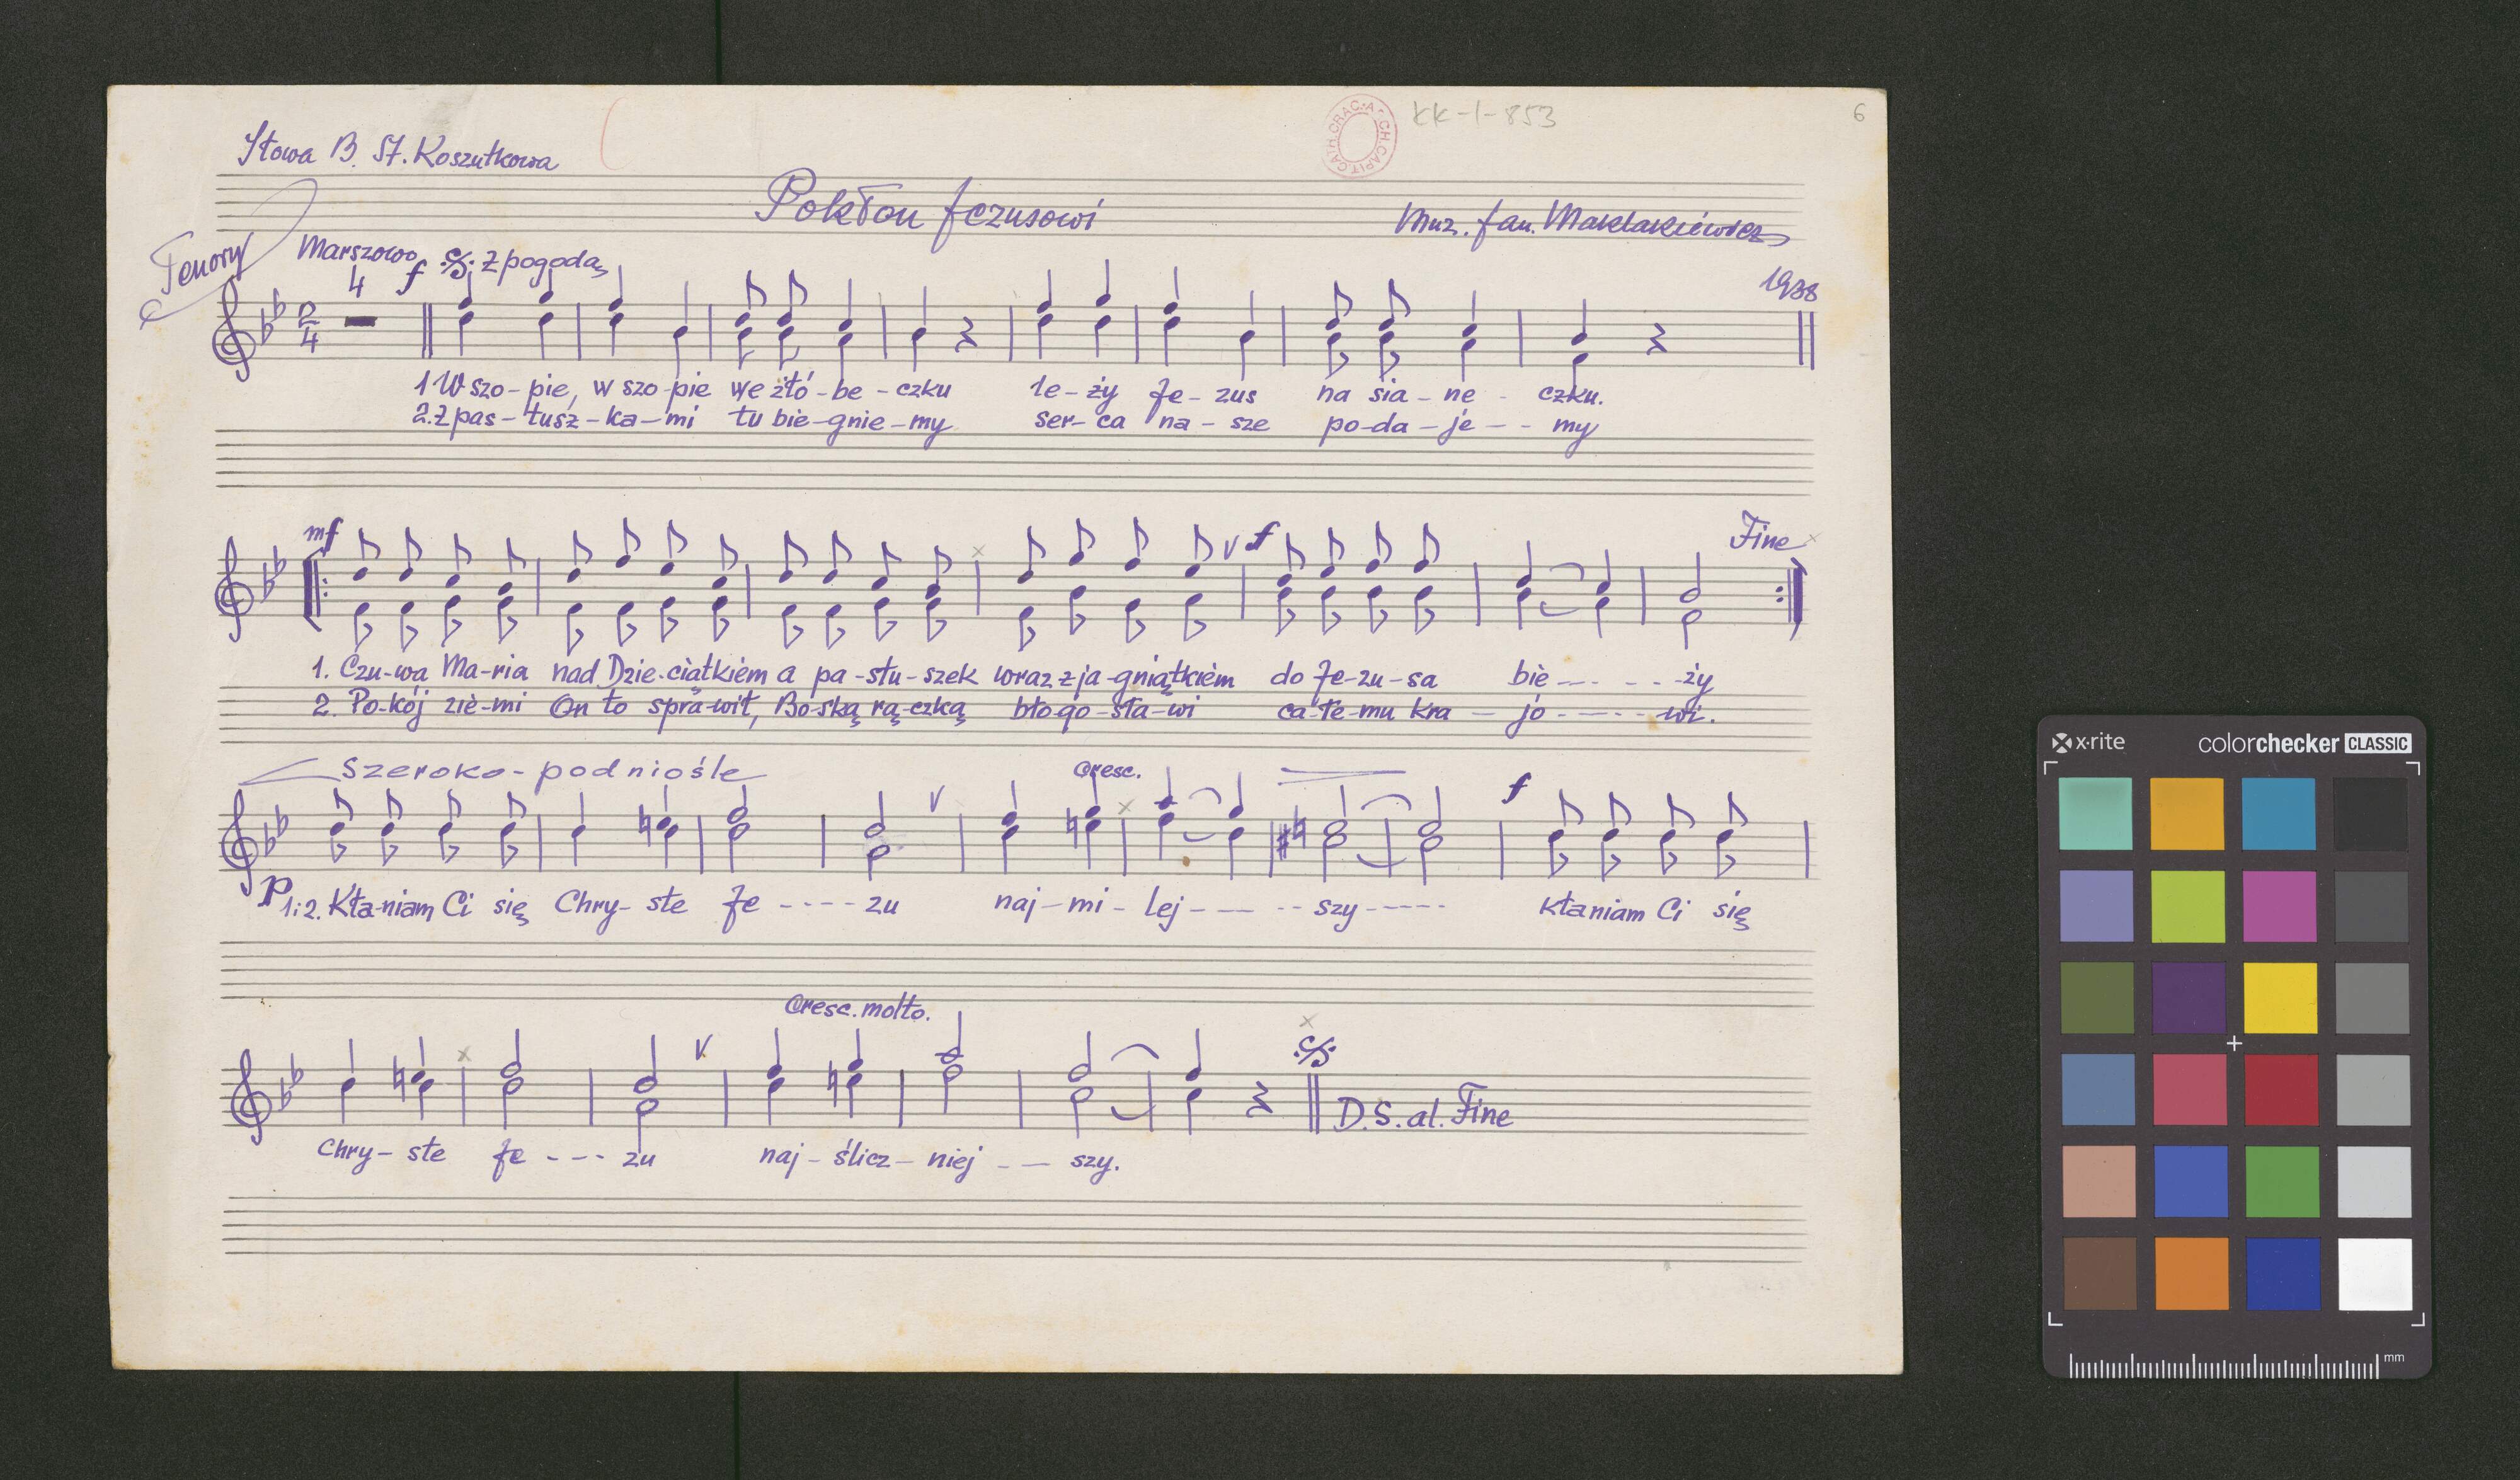 KK-I-853
6
CATH.CRAC.A CH.CAPIT.
Słowa B. St. Koszutkowa
Pokłon Jezusowi
Muz. Jan. Maklakiewicz
1938
Tenory
Marszowo
4 f z pogodą
2/4
1 W szo-pie, w szo-pie we żłó-be-czku le-ży Je-zus na sia-ne-czku.
2. Z pas-tusz-ka-mi tu bie-gnie-my ser-ca na-sze po-da-je--my
mf V f Fine
1. Czu-wa Ma-ria nad Dzie-ciątkiem a pa-stu-szek wraz z ja-gniątkiem do Je-zu-sa bie-----ży
2. Po-kój zie-mi On to spra-wił, Bo-ską rą-czką bło-go-sła-wi ca-łe-mu kra-jo----wi.
Szeroko-podniośle V Cresc. f
P 1i2. Kła-niam Ci się Chry-ste Je----zu naj-mi-lej-----szy----- kłaniam Ci się
V Cresc. molto.
D.S. al. Fine
Chry-ste Je---zu naj-ślicz-niej---szy.
x·rite colorchecker CLASSIC
mm